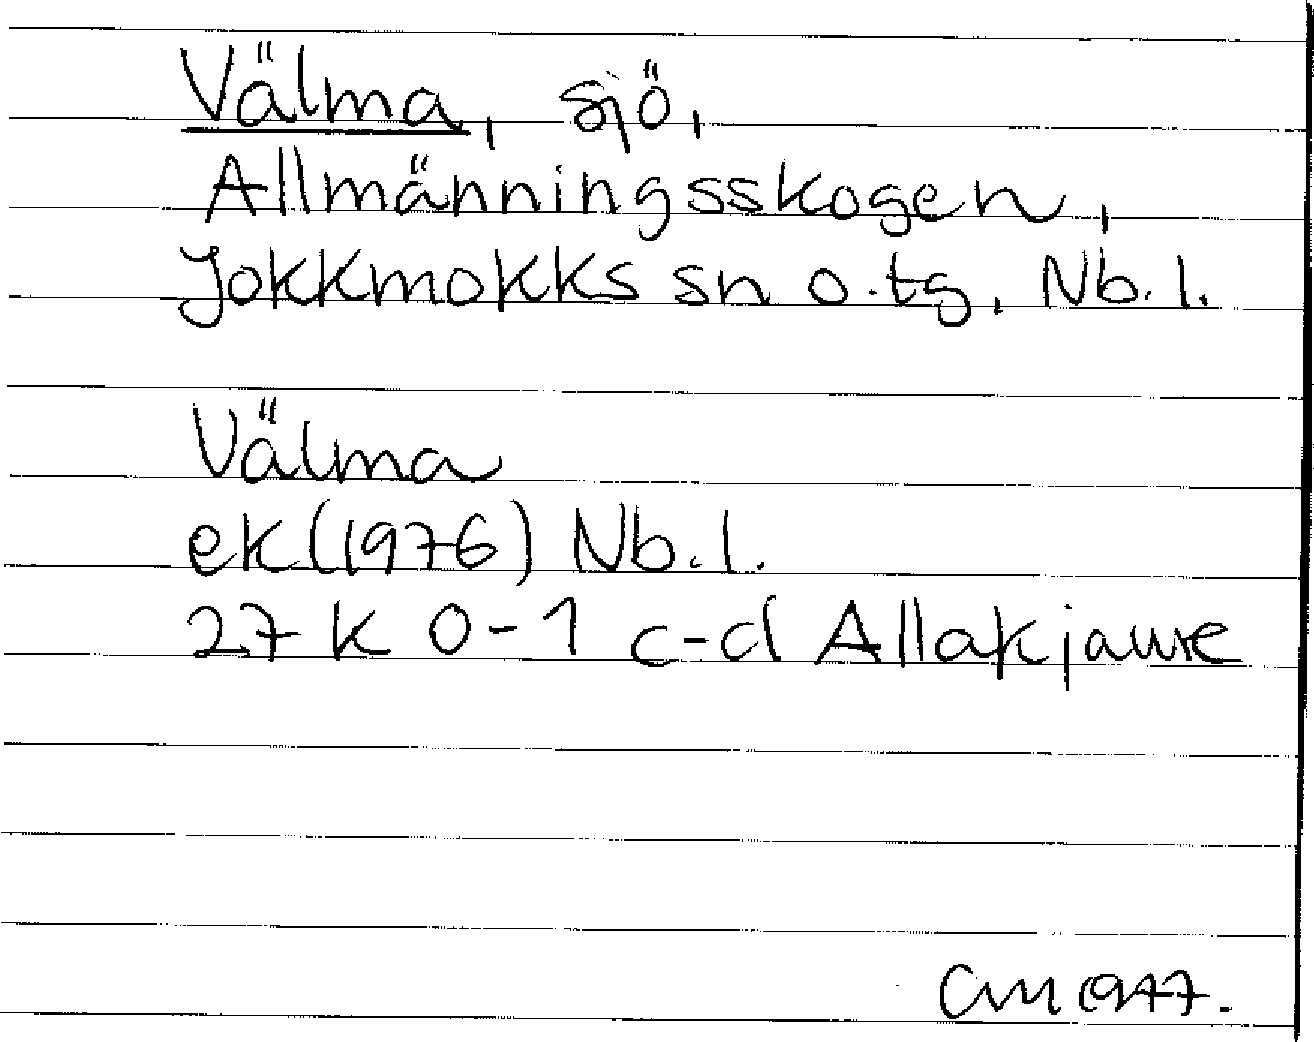 Välma, sjö,
Allmänningsskogen,
Jokkmokks sn o. tg, Nb. l.
Välma
ek (1976) Nb. l.
27 K 0-1 c-d Allakjaure
CM 1977.